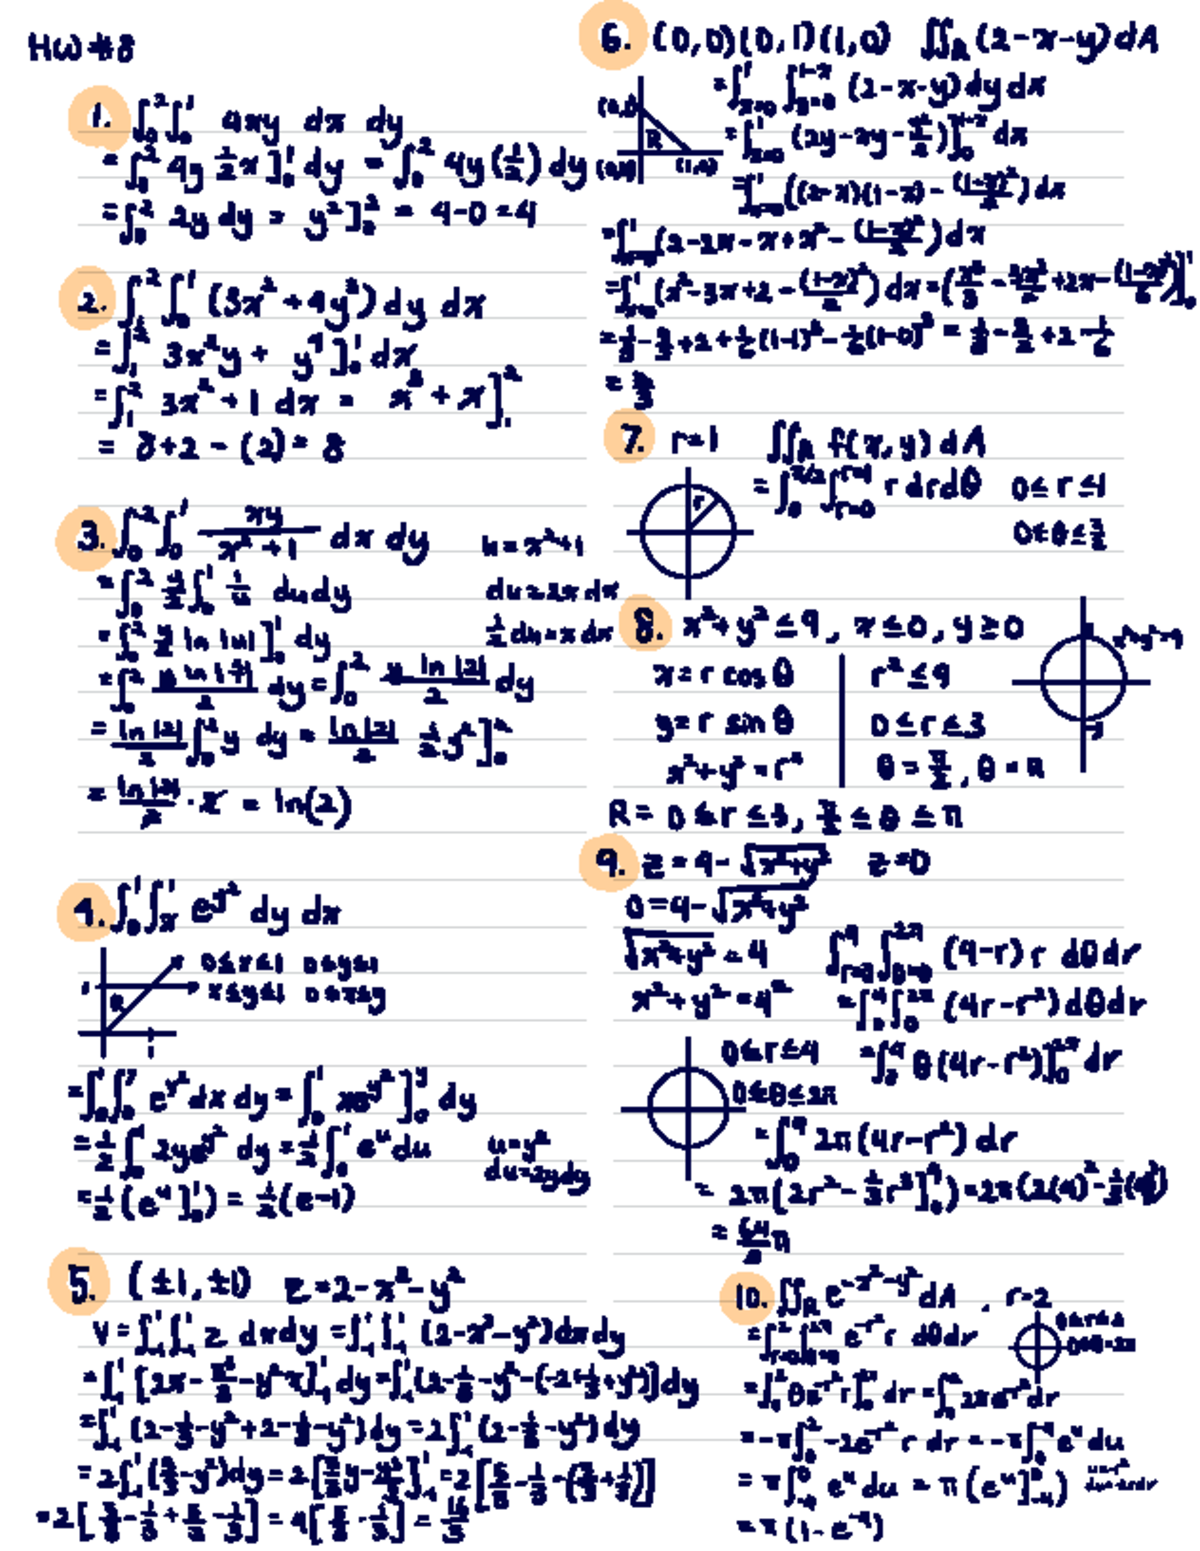 HW #8
1. ∫₀²∫₀¹ 4xy dx dy
= ∫₀² 4y ½x]₀¹ dy = ∫₀² 4y(½) dy
= ∫₀² 2y dy = y²]₀² = 4-0 = 4
2. ∫₁²∫₀¹ (3x²+4y³) dy dx
= ∫₁² 3x²y + y⁴]₀¹ dx
= ∫₁² 3x²+1 dx = x³+x]₁²
= 8+2-(2) = 8
3. ∫₀²∫₀¹ xy/(x²+1) dx dy u=x²+1
= ∫₀² y/2 ∫₀¹ 1/u du dy du=2x dx
= ∫₀² y/2 ln|u|]₀¹ dy ½du=x dx
dy = ∫₀² y ln|2|/2 dy
= ln|2|/2 ∫₀² y dy = ln|2|/2 ½y²]₀²
= ln|2|/2 · 2 = ln(2)
4. ∫₀¹∫ₓ¹ e^y² dy dx
0≤x≤1 0≤y≤1
x≤y≤1 0≤x≤y
1 R
1
= ∫₀¹∫₀^y e^y² dx dy = ∫₀¹ xe^y²]₀^y dy
= ½∫₀¹ 2ye^y² dy = ½∫₀¹ e^u du u=y²
du=2ydy
= ½(e^u]₀¹) = ½(e-1)
5. (±1,±1) z=2-x²-y²
V = ∫₋₁¹∫₋₁¹ z dxdy = ∫₋₁¹∫₋₁¹ (2-x²-y²)dxdy
= ∫₋₁¹ [2x-x³/3-y²x]₋₁¹ dy = ∫₋₁¹(2-⅓-y²-(-2+⅓+y²))dy
= ∫₋₁¹ (2-⅓-y²+2-⅓-y²)dy = 2∫₋₁¹ (2-⅓-y²)dy
= 2∫₋₁¹(5/3-y²)dy = 2[5/3y-y³/3]₋₁¹ = 2[5/3-⅓-(-5/3+⅓)]
= 2[5/3-⅓+5/3-⅓] = 4[5/3-⅓] = 16/3
6. (0,0)(0,1)(1,0) ∬_R (2-x-y)dA
= ∫ₓ₌₀¹ ∫ᵧ₌₀^1-x (2-x-y)dy dx
(0,1) R (0,0) (1,0)
= ∫ₓ₌₀¹ (2y-xy-y²/2)]₀^1-x dx
= ∫ₓ₌₀¹ ((2-x)(1-x) - (1-x)²/2) dx
= ∫ₓ₌₀¹ (2-2x-x+x² - (1-x)²/2) dx
= ∫ₓ₌₀¹ (x²-3x+2-(1-x)²/2) dx = (x³/3 - 3x²/2 + 2x -
= ⅓-3/2+2+⅙(1-1)³-⅙(1-0)³ = ⅓-3/2+2-⅙
7. r=1 ∬_R f(x,y)dA
= ∫₀^π/2 ∫ᵣ₌₀^r=1 r drdθ 0≤r≤1
r
0≤θ≤π/2
8. x²+y²≤9, x≤0, y≥0
x²+y²=9
x=r cosθ r²≤9
y=r sinθ 0≤r≤3
x²+y²=r² θ=π/2, θ=π
R= 0≤r≤3, π/2≤θ≤π
9. z=4-√x²+y² z=0
0=4-√x²+y²
√x²+y²=4 ∫ᵣ₌₀⁴∫θ₌₀^2π (4-r)r dθdr
x²+y²=4² = ∫₀⁴∫₀^2π (4r-r²)dθdr
0≤r≤4 = ∫₀⁴ θ(4r-r²)]₀^2π dr
0≤θ≤2π
= ∫₀⁴ 2π(4r-r²)dr
= 2π(2r²-⅓r³]₀⁴) = 2π(2(4)²-⅓(4)³)
= 64/3 π
10. ∬_R e^-x²-y² dA, r=2
= ∫ᵣ₌₀²∫θ₌₀^2π e^-r² r dθdr 0≤r≤2
0≤θ≤2π
= ∫₀² θe^-r² r]₀^2π dr = ∫₀² 2πe^-r² dr
= -π∫₀² -2e^-r² r dr = -π∫₀⁻⁴ e^u du
= π∫₋₄⁰ e^u du = π(e^u]₋₄⁰)
= π(1-e⁻⁴)